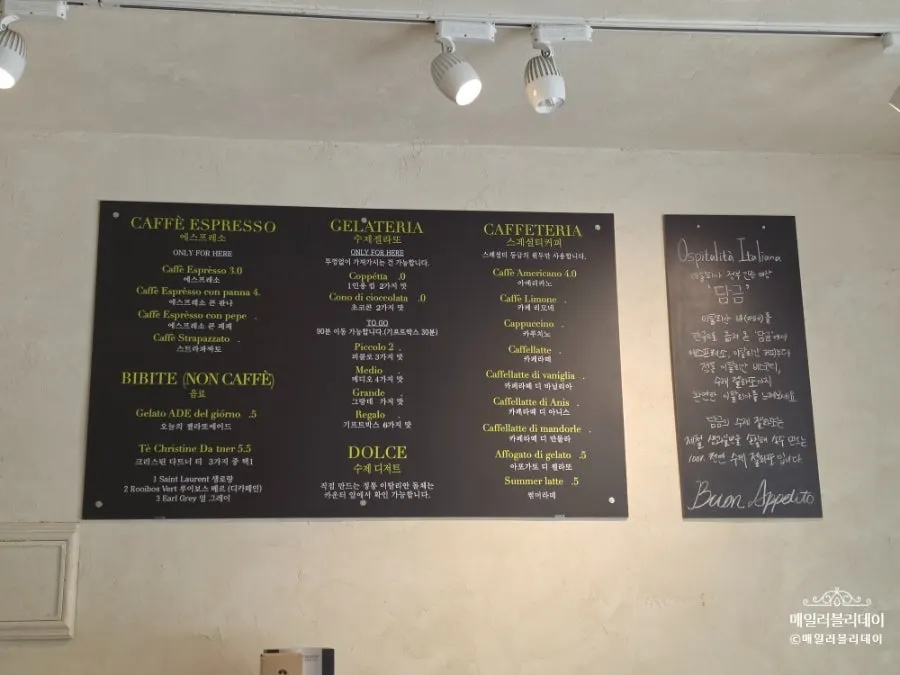 CAFFÈ ESPRESSO
에스프레소
ONLY FOR HERE
Caffè Esprèsso 3.0
에스프레소
Caffè Esprèsso con panna 4.
에스프레소 콘 판나
Caffè Esprèsso con pepe .
에스프레소 콘 페페
Caffè Strapazzato .
스트라파싸토
BIBITE (NON CAFFÈ)
음료
Gelato ADE del giórno .5
오늘의 젤라또에이드
Tè Christine Da tner 5.5
크리스틴 다트너 티 3가지 중 택1
1 Saint Laurent 생로랑
2 Rooibos Vert 루이보스 베르 (디카페인)
3 Earl Grey 얼 그레이
GELATERIA
수제젤라또
ONLY FOR HERE
뚜껑없이 가져가시는 건 가능합니다.
Coppétta .0
1인용 컵 2가지 맛
Cono di cioccolata .0
초코콘 2가지 맛
TO GO
90분 이동 가능합니다.(기프트박스 30분)
Piccolo 2 .
피콜로 3가지 맛
Medio .
메디오 4가지 맛
Grande .
그란데 가지 맛
Regalo .
기프트박스 6가지 맛
DOLCE
수제 디저트
직접 만드는 정통 이탈리안 돌체는
카운터 앞에서 확인 가능합니다.
CAFFETERIA
스페셜티커피
스페셜티 등급의 원두만 사용합니다.
Caffè Americano 4.0
아메리카노
Caffè Limone .
카페 리모네
Cappuccino .
카푸치노
Caffellatte .
카페라떼
Caffellatte di vaniglia .
카페라떼 디 바닐리아
Caffellatte di Anis .
카페라떼 디 아니스
Caffellatte di mandorle .
카페라떼 디 만돌라
Affogato di gelato .5
아포가토 디 젤라또
Summer latte .5
썸머라떼
Ospitalità Italiana
이탈리아 정부 인증 매장
"담금"
이탈리안 바(bar)를
한국으로 옮겨 온 '담금'에서
에스프레소, 이탈리안 커피부터
정통 이탈리안
수제 젤라또까지
완연한 이탈리아를 느껴보세요
담금의 수제 젤라또는
제철 생과일을 사용해 만드는
100% 천연 수제 젤라또 입니다.
Buon Appetito
매일러블리데이
©매일러블리데이